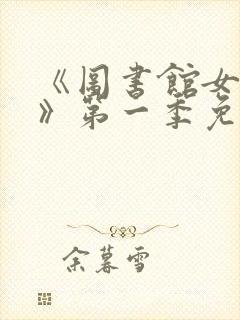 《圖書館女
》第一季免
余暮雪